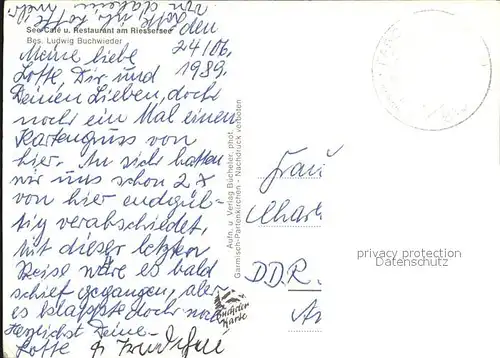 See-Café u. Restaurant am Riessersee
Bes. Ludwig Buchwieder
den
24/06.
1989.
Meine liebe
Lotte, Dir und
Deinen Lieben, doch
noch ein Mal einen
Kartengruss von
hier. An sich hatten
wir uns schon 2 x
von hier endgül-
tig verabschiedet,
mit dieser letzten
Reise wäre es bald
schief gegangen, aber
es klappte doch noch
Herzlichst Deine
Lotte
Aufn. u. Verlag Bücheler, phot.
Garmisch-Partenkirchen - Nachdruck verboten
Bücheler
Karte
Frau
DDR.
privacy protection
Datenschutz